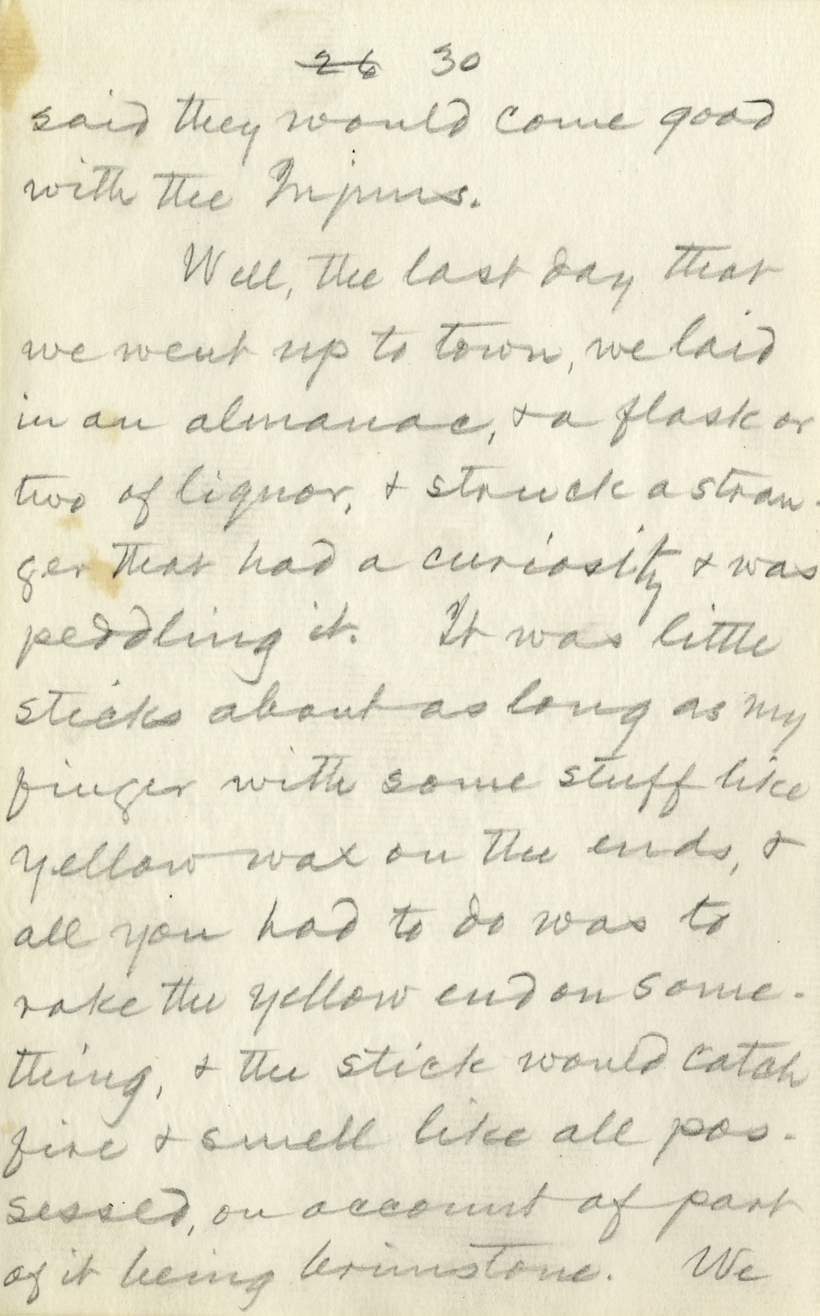 26 30
said they would come good
with the Injuns.
Well, the last day that
we went up to town, we laid
in an almanac, & a flask or
two of liquor, & struck a stran-
ger that had a curiosity & was
peddling it. It was little
sticks about as long as my
finger with some stuff like
yellow wax on the ends, &
all you had to do was to
rake the yellow end on some-
thing, & the stick would catch
fire & smell like all pos-
sessed, on account of part
of it being brimstone. We